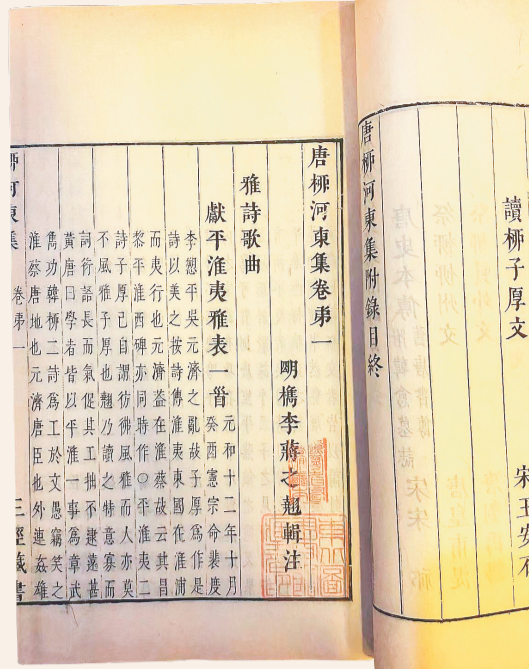 讀桺子厚文　宋王安石
唐桺河東集附錄目終
唐桺河東集卷弟一
明檇李蔣之翹輯注
雅詩歌曲
獻平淮夷雅表一首
元和十二年十月
癸酉憲宗命裴度
李愬平吳元濟之亂故子厚爲作是
詩以美之按詩傳淮夷東國在淮浦
而夷行也元濟葢在淮蔡故云其昌
黎平淮西碑亦同時作○平淮夷二
詩子厚已自謂彷彿風雅而人亦莫
不風雅子厚也翹乃讀之特意寡而
詞衍語長而氣促其工拙不逮遠甚
黃唐曰學者皆以平淮一事爲章武
雋功韓桺二詩爲工於文愚竊笑之
淮蔡唐地也元濟唐臣也外連姦雄
桺河東集　卷弟一　三徑藏書